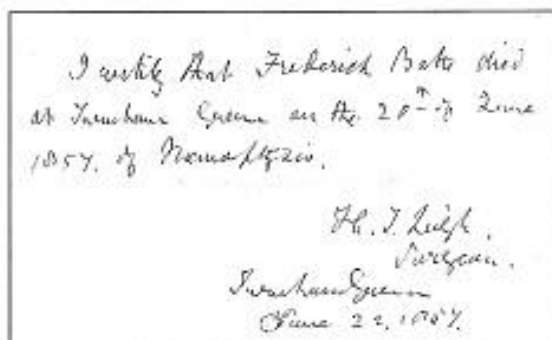 I certify that Frederick Bate died
at Turnham Green on the 20th of June
1857. of Hæmoptysis.
H. T. Leigh.
Surgeon.
Turnham Green
June 22. 1857.